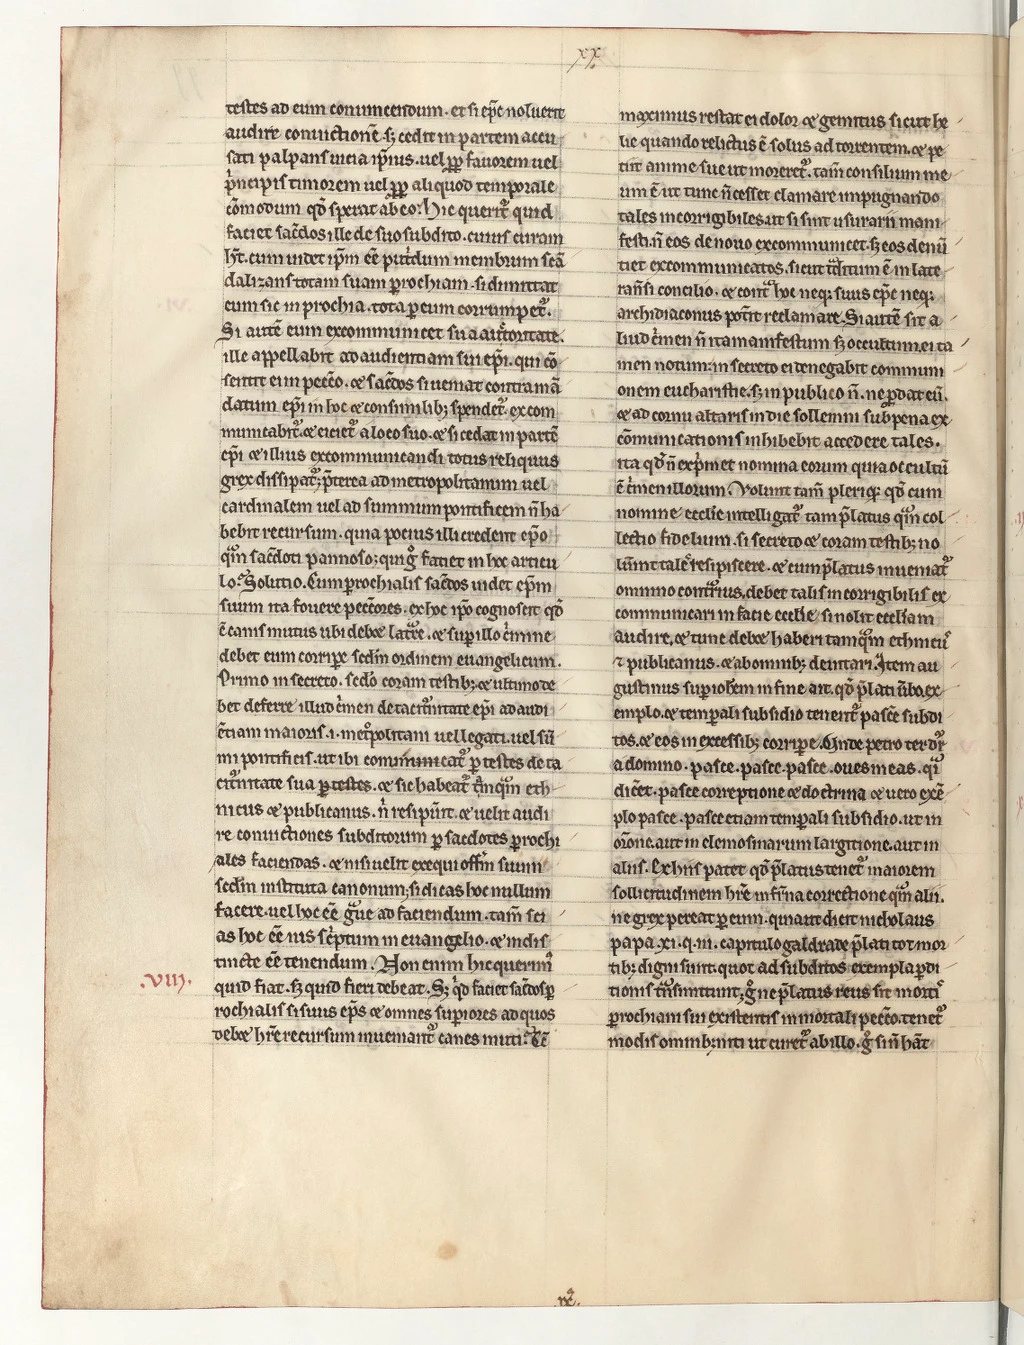 xx.
testes ad eum conuincendum. et si ep̃c noluerit
audire conuictionẽ. sꝫ cedit in partem accu
sati palpans uicia ip̃ius. uel ꝓp̃ fauorem uel
p̃ncipis timorem uel ꝓp̃ aliquod temporale
cõmodum qd̃ sperat ab eo: hic querit᷑ quid
faciet sac̃dos ille de suo subdito. cuius curam
ht̃. cum uidet ip̃m ẽe put̃dum membrum scã
dalizans totam suam ꝑrochiam. si dimittat
eum sic in ꝑrochia. tota ꝑ eum corrumpet᷑.
Si autẽ eum excommunicet sua auc̃toritate.
ille appellabit ad audientiam sui ep̃i. qui cõ
sentit ei in pecc̃o. ⁊ sac̃dos si ueniat contra mã
datum ep̃i in hoc ⁊ consimilibꝫ spendet᷑. excom
municabit᷑. ⁊ eiciet᷑ a loco suo. ⁊ si cedat in partẽ
ep̃i ⁊ illius excommunicandi totus reliquus
grex dissipat᷑; p̃terea ad metropolitanum uel
cardinalem uel ad summum pontificem ñ ha
bebit recursum. quia pocius illi credent ep̃o
qͣm sac̃doti pannoso; quid g̊ faciet in hoc articu
lo. Solutio. Cum ꝑrochialis sac̃dos uidet ep̃m
suum ita fouere pecc̃ores. ex hoc ip̃o cognoscit qd̃
ẽ canis mutus ubi debet latͣre. ⁊ sup̱ illo c̃mine
debet eum corriꝑe sedm̃ ordinem euangelicum.
Primo in secreto. sedõ coram testibꝫ ⁊ ultimo de
bet deferre illud c̃men de tacit̃nitate ep̃i ad audi
ẽtiam maioris .i. met̃politani uel legati. uel sũ
mi pontificis. ut ibi communicat᷑ ꝑ testes de ta
cit̃nitate sua ꝑ testes. ⁊ sic habeat᷑ tͣnqͣm eth
nicus ⁊ publicanus. ñ resipũit. ⁊ uelit audi
re conuictiones subditorum ꝑ sac̃dotes ꝑrochi
ales faciendas. ⁊ nisi uelit exequi offm̃ suum
sedm̃ instituta canonum; si dicas hoc nullum
facere. uel hoc ẽe gͣue ad faciendum. tam̃ sci
as hoc ẽe ius sc̃ptum in euangelio. ⁊ indis
tincte ẽe tenendum. Non enim hic querim᷒
.viij. quid fiat. sꝫ quid fieri debeat. Sꝫ qͥd faciet sac̃dos ꝑ
rochialis si suus ep̃s ⁊ omnes suꝑiores ad quos
debet hr̃e recursum inueniant᷑ canes muti: Cẽ
maximus restat ei dolor ⁊ gemitus sicut he
lie quando relictus ẽ solus ad torrentem. ⁊ pe
tiit anime sue ut moreret᷑. tam̃ consilium me
um ẽ ut tunc ñ cesset clamare impugnando
tales incorrigibiles. ut si sint usurarii mani
festi. ñ eos de nouo excommunicet. sꝫ eos denũ
tiet excommunicatos. sicut tͣditum ẽ in late
ran̄si concilio. ⁊ contͣ hoc neqꝫ suus ep̃c neqꝫ
archidiaconus pot̃it reclamare. Si autẽ sit a
liud c̃men ñ ita manifestum sꝫ occultum. ei ta
men notum: in secreto ei denegabit commun
onem eucharistie. sꝫ in publico ñ. ne ꝑdat eũ.
⁊ ad cornu altaris in die sollemni sub pena ex
cõmunicationis inhibebit accedere tales.
ita qd̃ ñ exp̃met nomina eorum quia occultũ
ẽ c̃men illorum. Volunt tam̃ pleriqꝫ qd̃ cum
nomine ecclie intelligat᷑ tam p̃latus qͣm col
lectio fidelium. si secreto ⁊ coram testibꝫ no
luĩt talẽ resipiscere. ⁊ eum p̃latus inueniat᷑
omnino contͣrius. debet talis incorrigibilis ex
communicari in facie ecclie si nolit eccliam
audire. ⁊ tunc debet haberi tamqͣm ethnicu᷒
⁊ publicanus. ⁊ ab omnibꝫ deuitari. Item au
gustinus suꝑ ioh̃em in fine ait. qd̃ p̃lati ũbo. ex
emplo. ⁊ temꝑali subsidio tenent᷑ pasc̃e subdi
tos. ⁊ eos in excessibꝫ corriꝑe. Unde petro ter dr̃
a domino. pasce. pasce. pasce. oues meas. qͣi
dic̃et. pasce correptione ⁊ doctrina ⁊ uero exẽ
plo pasce. pasce etiam temꝑali subsidio. ut in
or̃one. aut in elemosinarum largitione. aut in
aliis. Ex hiis patet qd̃ p̃latus tenet᷑ maiorem
sollicitudinem hr̃e in fr̃na correctione qͣm alii.
ne grex pereat ꝑ eum. quia ut dicit nicholaus
papa .xi. q. iii. capitulo galdrade p̃lati tot mor
tibꝫ digni sunt. quot ad subditos exempla ꝑdi
tionis tͣnsmittunt; g̊ ne p̃latus reus sit morti᷒
ꝑrochiani sui existentis in mortali pecc̃o. tenet᷑
modis omnibꝫ niti ut curet᷑ ab illo. g̊ si ñ hãt